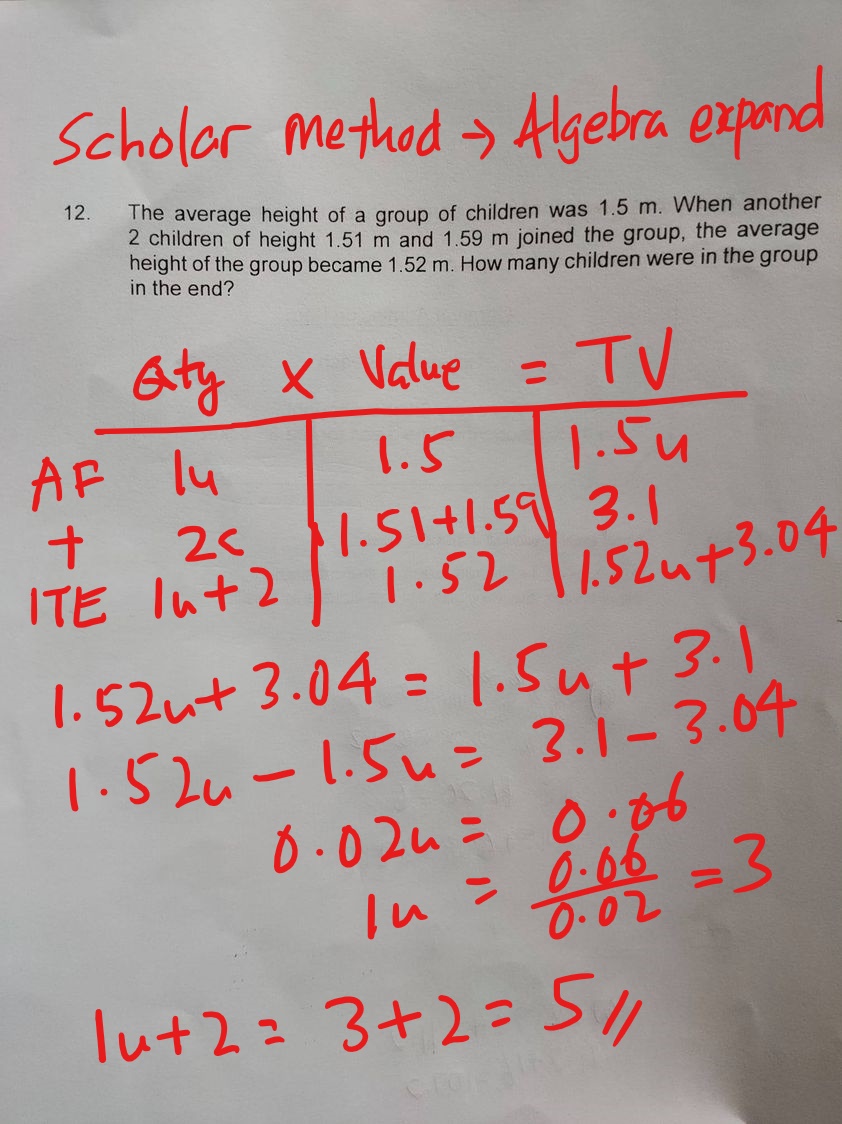 Scholar method → Algebra expand
12. The average height of a group of children was 1.5 m. When another
2 children of height 1.51 m and 1.59 m joined the group, the average
height of the group became 1.52 m. How many children were in the group
in the end?
Qty x Value = TV
AF 1u 1.5 1.5u
+ 2c 1.51+1.59 3.1
ITE 1u+2 1.52 1.52u+3.04
1.52u+3.04 = 1.5u+3.1
1.52u-1.5u = 3.1-3.04
0.02u = 0.06
1u = 0.06/0.02 = 3
1u+2 = 3+2 = 5//